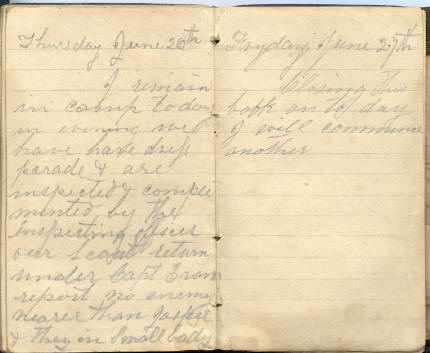 Thursday June 26th
I remain
in camp today
in evening we
have have dress
parade & are
inspected & comple
minted by the
inspecting officer
our Scout return
under Capt Evans
report no enemy
nearer than Jasper
& they in Small body
Fryday June 27th
Closing this
book on to day
I will commence
another